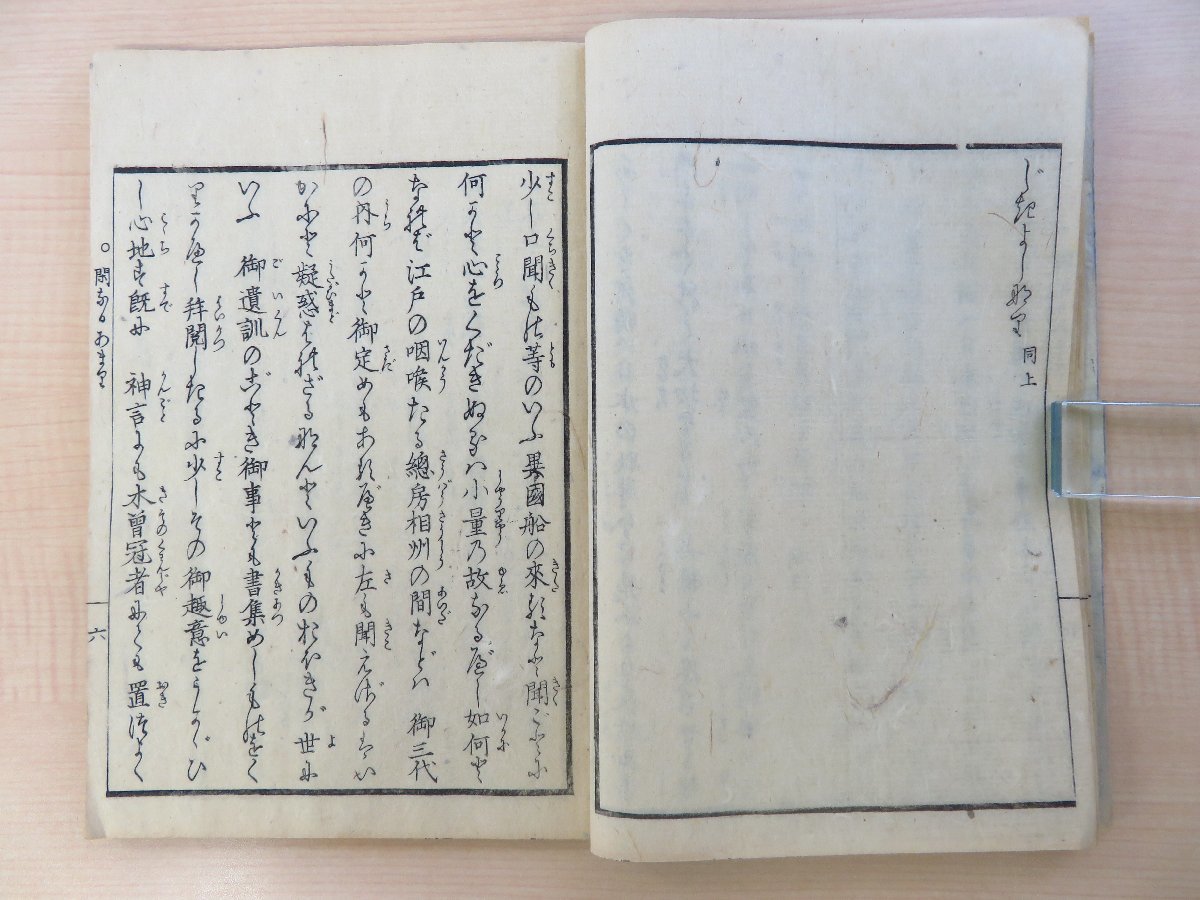 じきよし那里 同上
少し口聞もの等のいふ異國船の來るなど聞ごとに
何かと心をくだきぬるハ小量乃故なるべし如何と
なれば江戸の咽喉たる總房相州の間などハ 御三代
の内何かと御定めもあるべきに左も聞えざるハい
かにと疑惑せざる那んといふものおほきが世に
いふ 御遺訓のごとき御事ども書集めしものをく
りかへし拜閲したるに少しその御趣意をうかゞひ
し心地す既に 神言にも木曾冠者にくも置つよく
○閑なるあまり
六